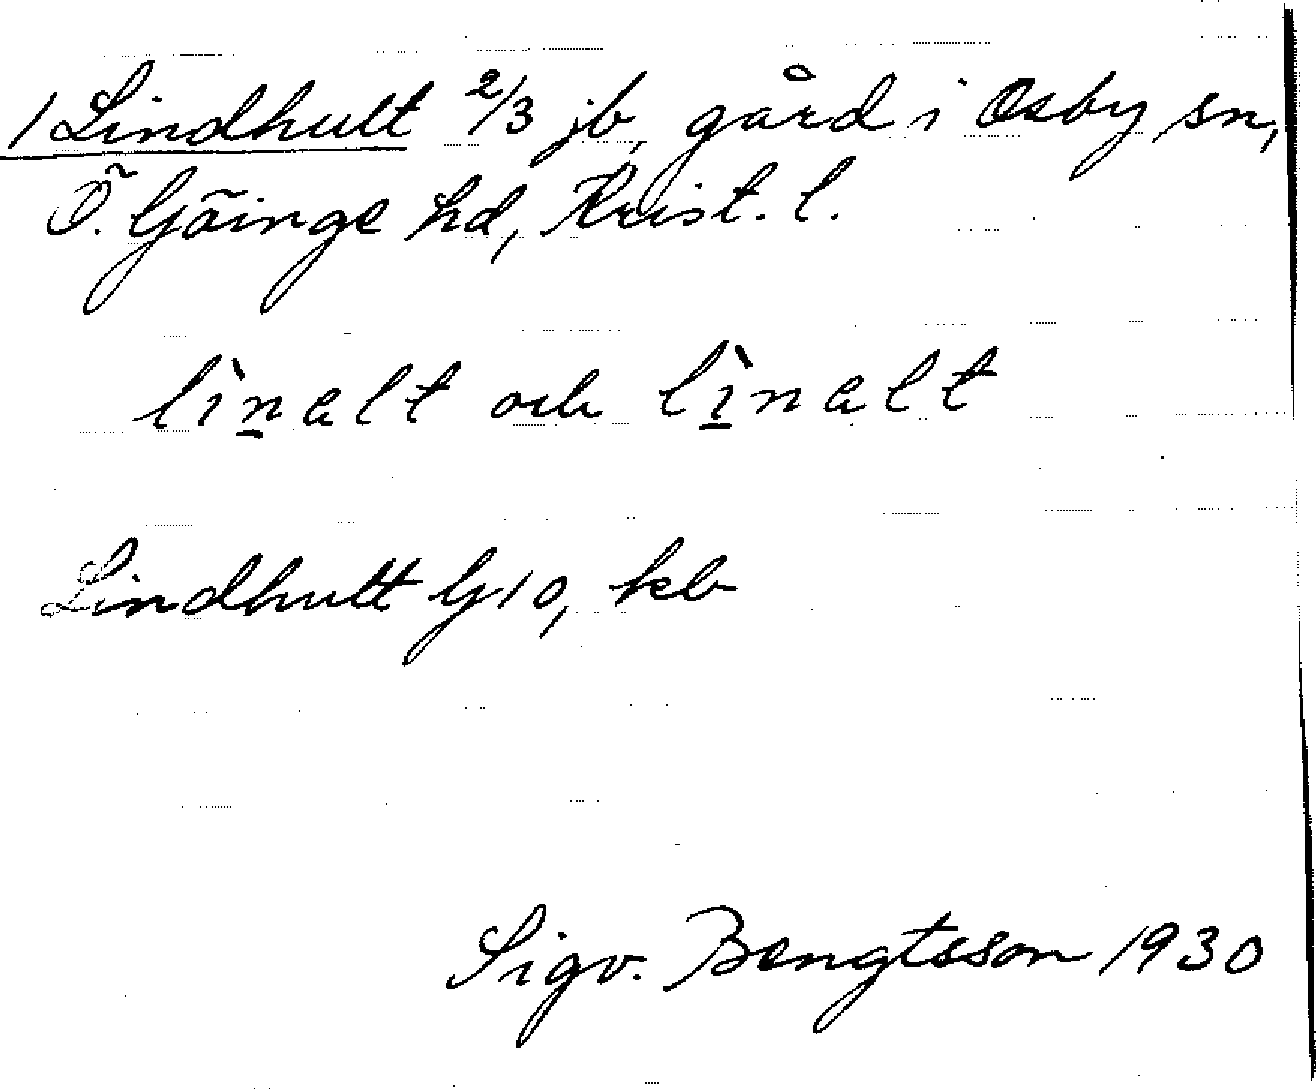 1 Lindhult 2/3 jb, gård i Osby sn,
Ö. Göinge hd, Krist. l.
lìn̲alt och lì̲nalt
Lindhult G10, kb
Sigv. Bengtsson 1930